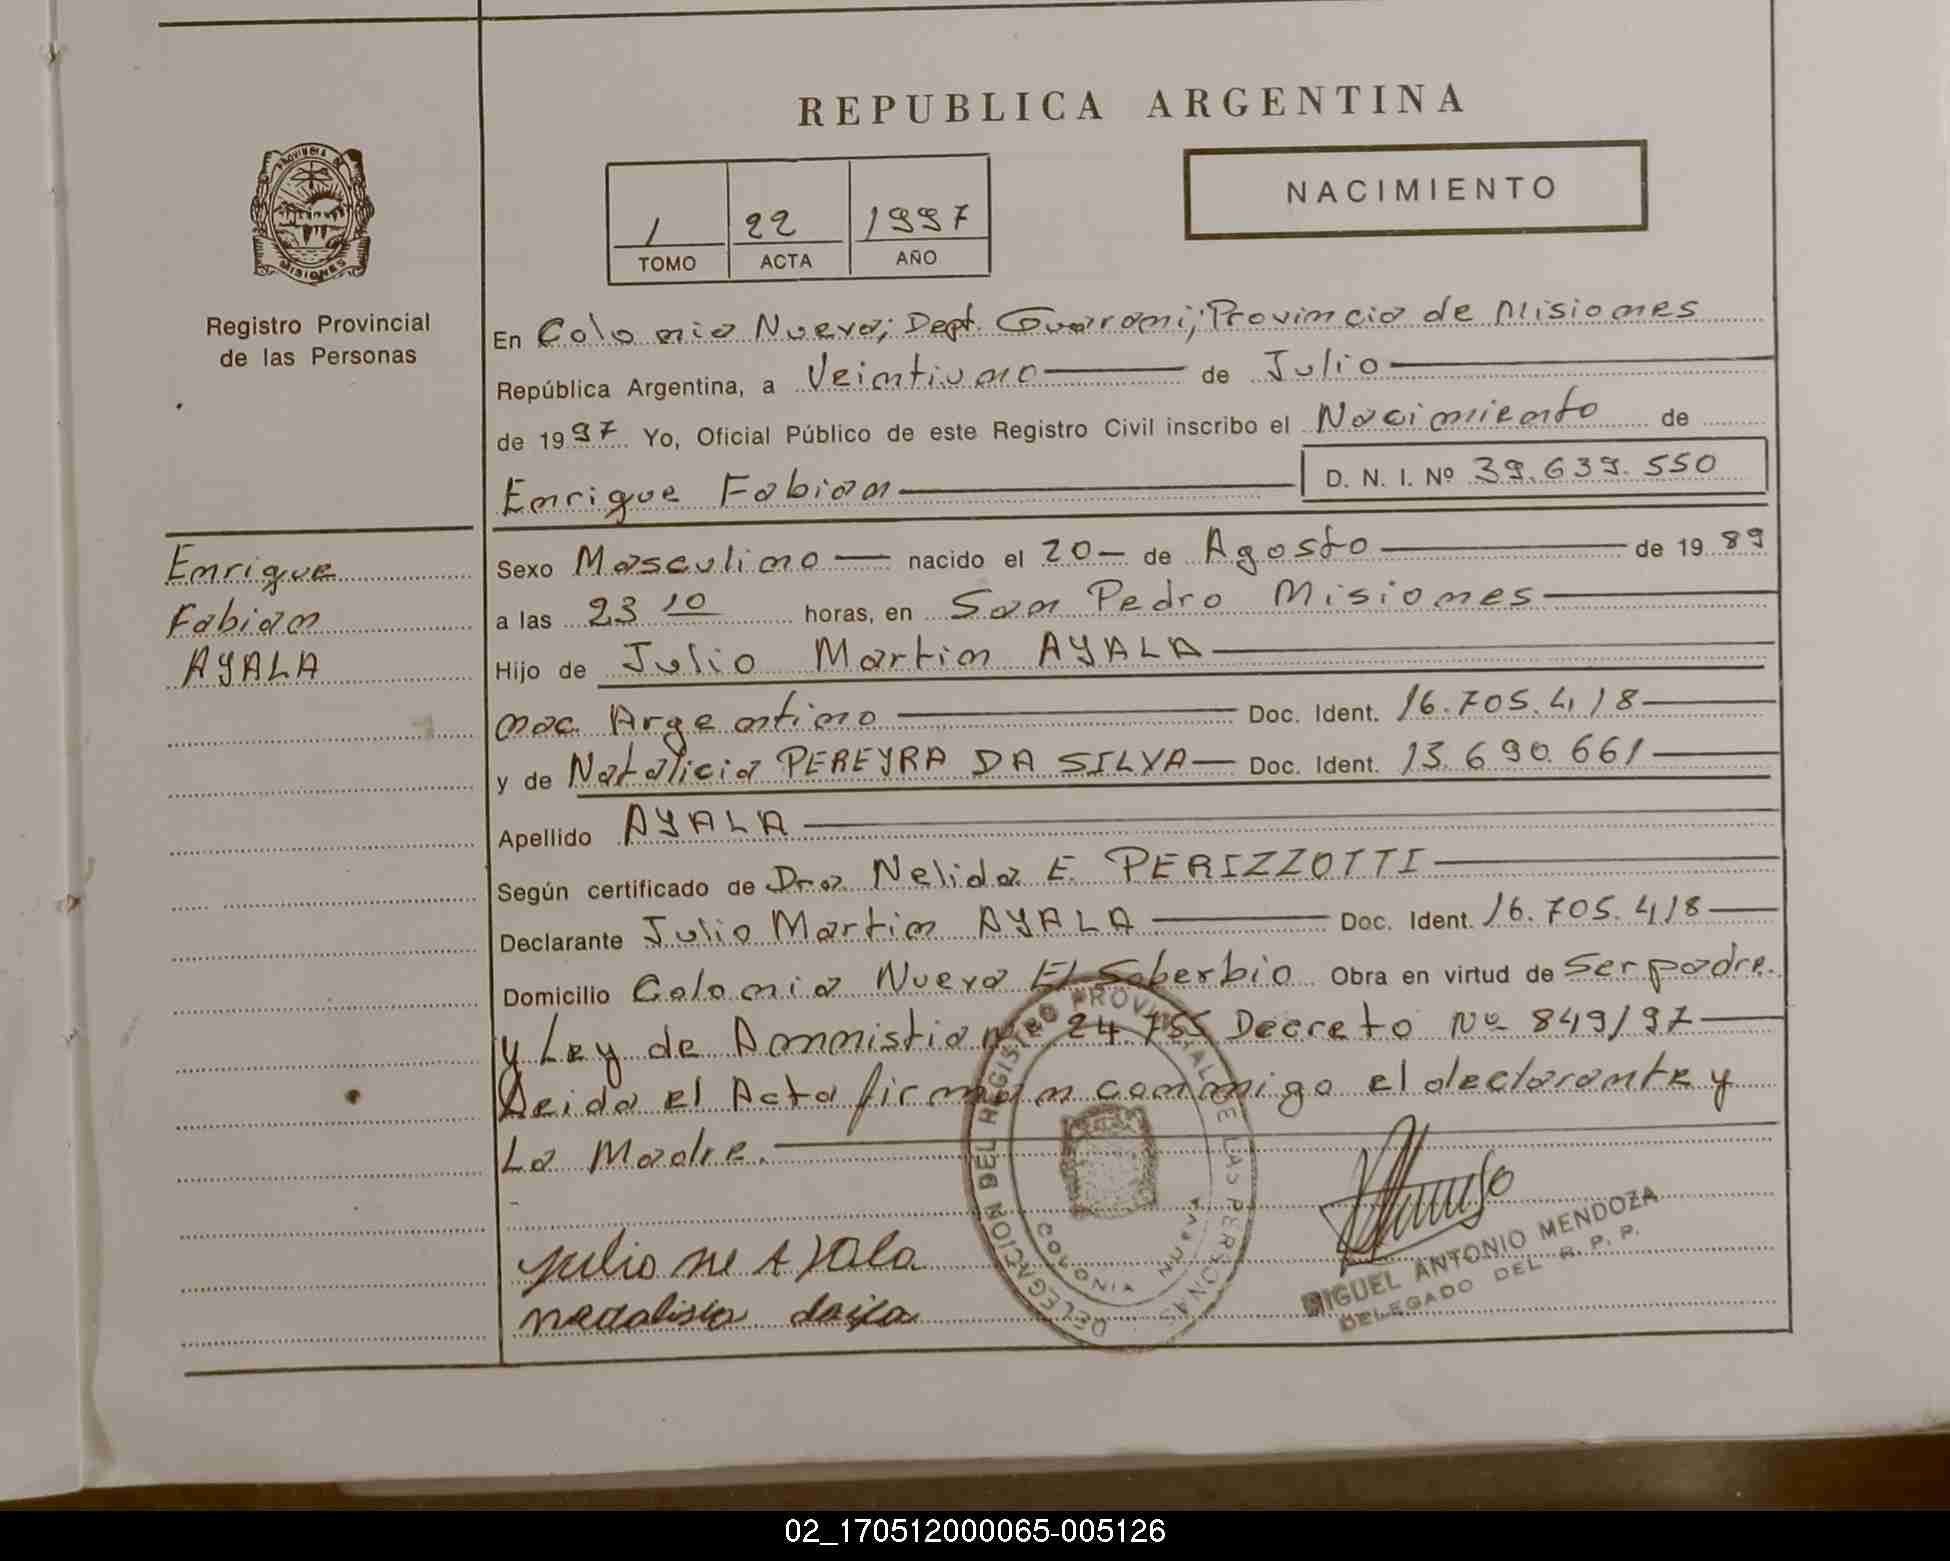 REPUBLICA ARGENTINA
NACIMIENTO
1 22 1997
TOMO ACTA AÑO
PROVINCIA DE
MISIONES
Registro Provincial
de las Personas
En Colonia Nueva; Dept. Guarani; Provincia de Misiones
República Argentina, a Veintiuno de Julio
de 1997 Yo, Oficial Público de este Registro Civil inscribo el Nacimiento de
Enrique Fabian D. N. I. Nº 39.639.550
Enrique
Fabian
AYALA
Sexo Masculino nacido el 20 de Agosto de 1989
a las 23 10 horas, en San Pedro Misiones
Hijo de Julio Martin AYALA
nac. Argentino Doc. Ident. 16.705.418
y de Natalicia PEREYRA DA SILVA Doc. Ident. 13.690.661
Apellido AYALA
Según certificado de Dra Nelida E. PERIZZOTTI
Declarante Julio Martin AYALA Doc. Ident. 16.705.418
Domicilio Colonia Nueva El Soberbio Obra en virtud de Ser padre.
y Ley de Amnistia Nº 24.755 Decreto Nº 849/97
Leida el Acta firman conmigo el declarante y
La Madre.
DELEGACION DEL REGISTRO PROVINCIAL DE LAS PERSONAS
COLONIA NUEVA
julio Ayala
MIGUEL ANTONIO MENDOZA
DELEGADO DEL R. P. P.
02_170512000065-005126